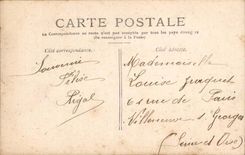 CARTE POSTALE
La Correspondance au recto n'est pas acceptée par tous les pays étrangers
(Se renseigner à la Poste)
Côté correspondance.
Côté adresse.
Souvenir
Rigal
Mademoiselle
Louise
rue de Paris
Villeneuve St Georges
(Seine et Oise)